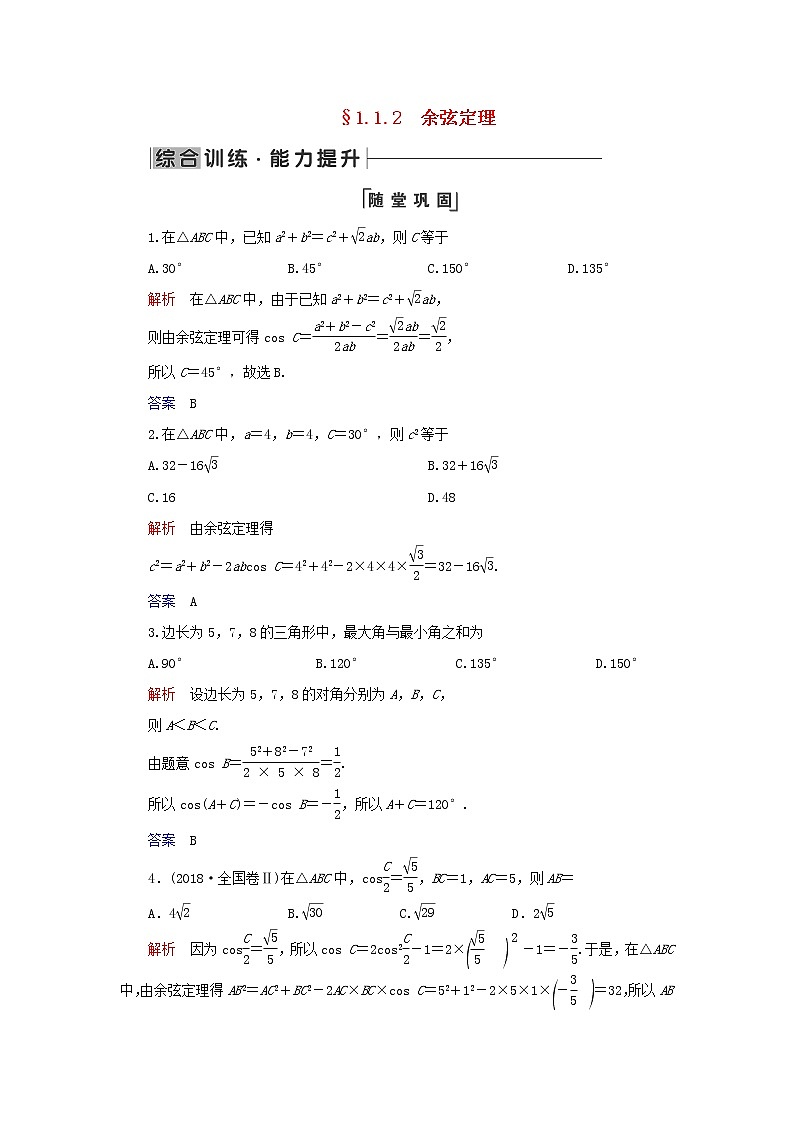 §1.1.2 余弦定理
综合训练·能力提升
随堂巩固
1.在△ABC中，已知a²＋b²＝c²＋√2ab，则C等于
A.30° B.45° C.150° D.135°
解析 在△ABC中，由于已知a²＋b²＝c²＋√2ab，
则由余弦定理可得cos C＝(a²＋b²－c²)/(2ab)＝(√2ab)/(2ab)＝√2/2，
所以C＝45°，故选B.
答案 B
2.在△ABC中，a＝4，b＝4，C＝30°，则c²等于
A.32－16√3 B.32＋16√3
C.16 D.48
解析 由余弦定理得
c²＝a²＋b²－2abcos C＝4²＋4²－2×4×4×√3/2＝32－16√3.
答案 A
3.边长为5，7，8的三角形中，最大角与最小角之和为
A.90° B.120° C.135° D.150°
解析 设边长为5，7，8的对角分别为A，B，C，
则A＜B＜C.
由题意cos B＝(5²＋8²－7²)/(2×5×8)＝1/2.
所以cos(A＋C)＝－cos B＝－1/2，所以A＋C＝120°.
答案 B
4．(2018·全国卷Ⅱ)在△ABC中，cos C/2＝√5/5，BC＝1，AC＝5，则AB＝
A．4√2 B.√30 C.√29 D．2√5
解析 因为cos C/2＝√5/5，所以cos C＝2cos² C/2－1＝2×(√5/5)²－1＝－3/5.于是，在△ABC
中，由余弦定理得AB²＝AC²＋BC²－2AC×BC×cos C＝5²＋1²－2×5×1×(－3/5)＝32，所以AB